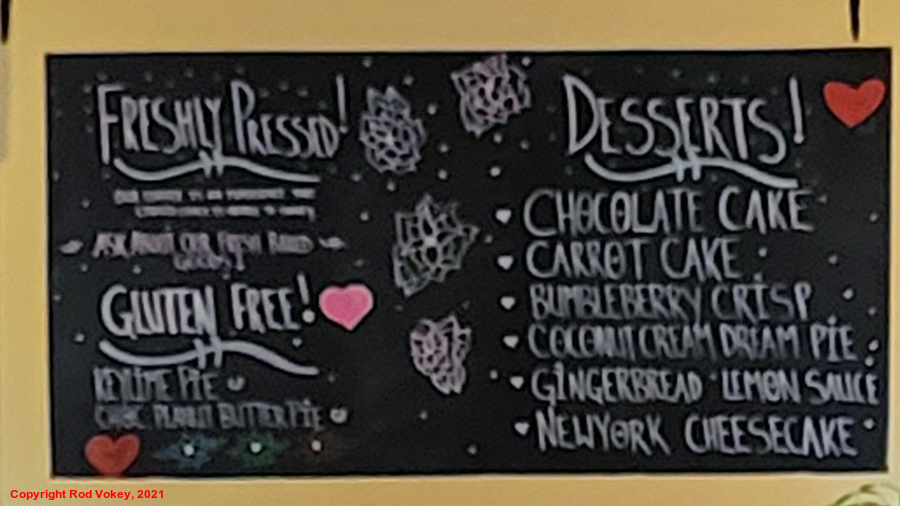 FRESHLY PRESSED!
ASK ABOUT OUR FRESH BAKED
GOODS!
GLUTEN FREE!
KEYLIME PIE
CHOC PEANUT BUTTER PIE
DESSERTS!
CHOCOLATE CAKE
CARROT CAKE
BUMBLEBERRY CRISP
COCONUT CREAM DREAM PIE
GINGERBREAD LEMON SAUCE
NEWYORK CHEESECAKE
Copyright Rod Vokey, 2021